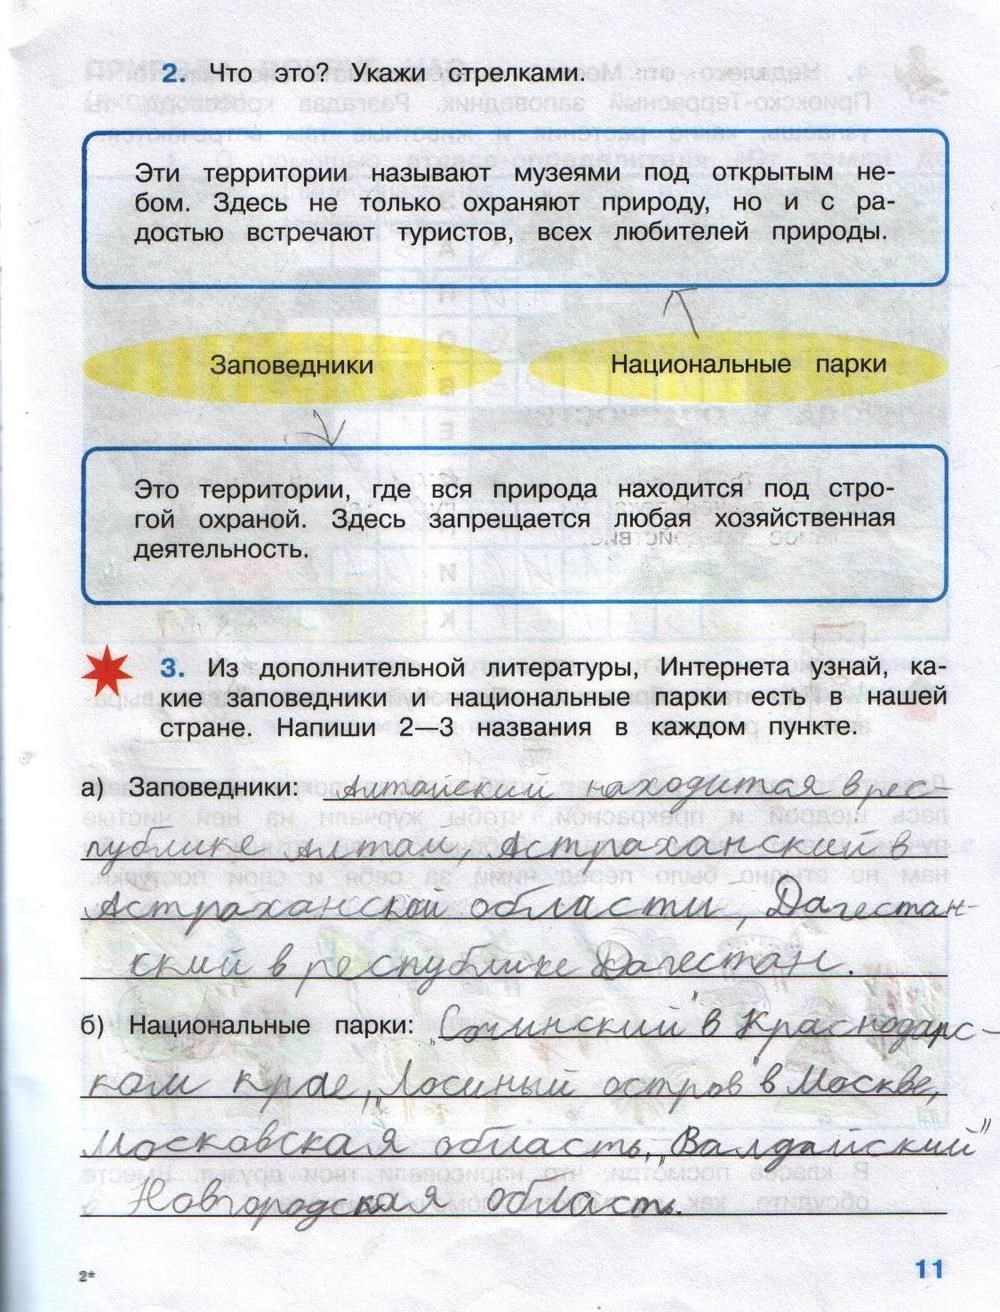 2. Что это? Укажи стрелками.
Эти территории называют музеями под открытым не-
бом. Здесь не только охраняют природу, но и с ра-
достью встречают туристов, всех любителей природы.
Заповедники
Национальные парки
Это территории, где вся природа находится под стро-
гой охраной. Здесь запрещается любая хозяйственная
деятельность.
3. Из дополнительной литературы, Интернета узнай, ка-
кие заповедники и национальные парки есть в нашей
стране. Напиши 2—3 названия в каждом пункте.
а) Заповедники: Алтайский находится в рес-
публике Алтай, Астраханский в
Астраханской области, Дагестан-
ский в республике Дагестан.
б) Национальные парки: „Сочинский" в Краснодарс-
ком крае, „Лосиный остров" в Москве,
Московская область, „Валдайский"
Новгородская область.
2*
11